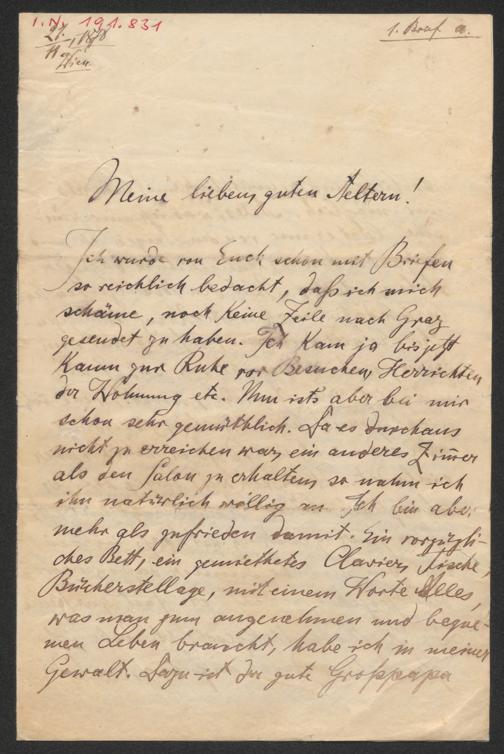 I.N. 191.831
27./11. 1878
Wien
1. Brief a.
Meine liebens guten Aeltern!
Ich wurde von Euch schon mit Briefen
so reichlich bedacht, daß ich mich
schäme, noch keine Zeile nach Graz
gesendet zu haben. Ich kam ja bis jetzt
kaum zur Ruhe vor Besuchen, Herrichten
der Wohnung etc. Nun ists aber bei mir
schon sehr gemüthlich. Da es durchaus
nicht zu erreichen war, ein anderes Zimmer
als den Salon zu erhalten, so nahm ich
ihn natürlich willig an. Ich bin aber
mehr als zufrieden damit. Ein vorzügli-
ches Bett, ein gemiethetes Clavier, Tische,
Bücherstellage, mit einem Worte Alles,
was man zum angenehmen und beque-
men Leben braucht, habe ich in meiner
Gewalt. Dazu ist der gute Großpapa